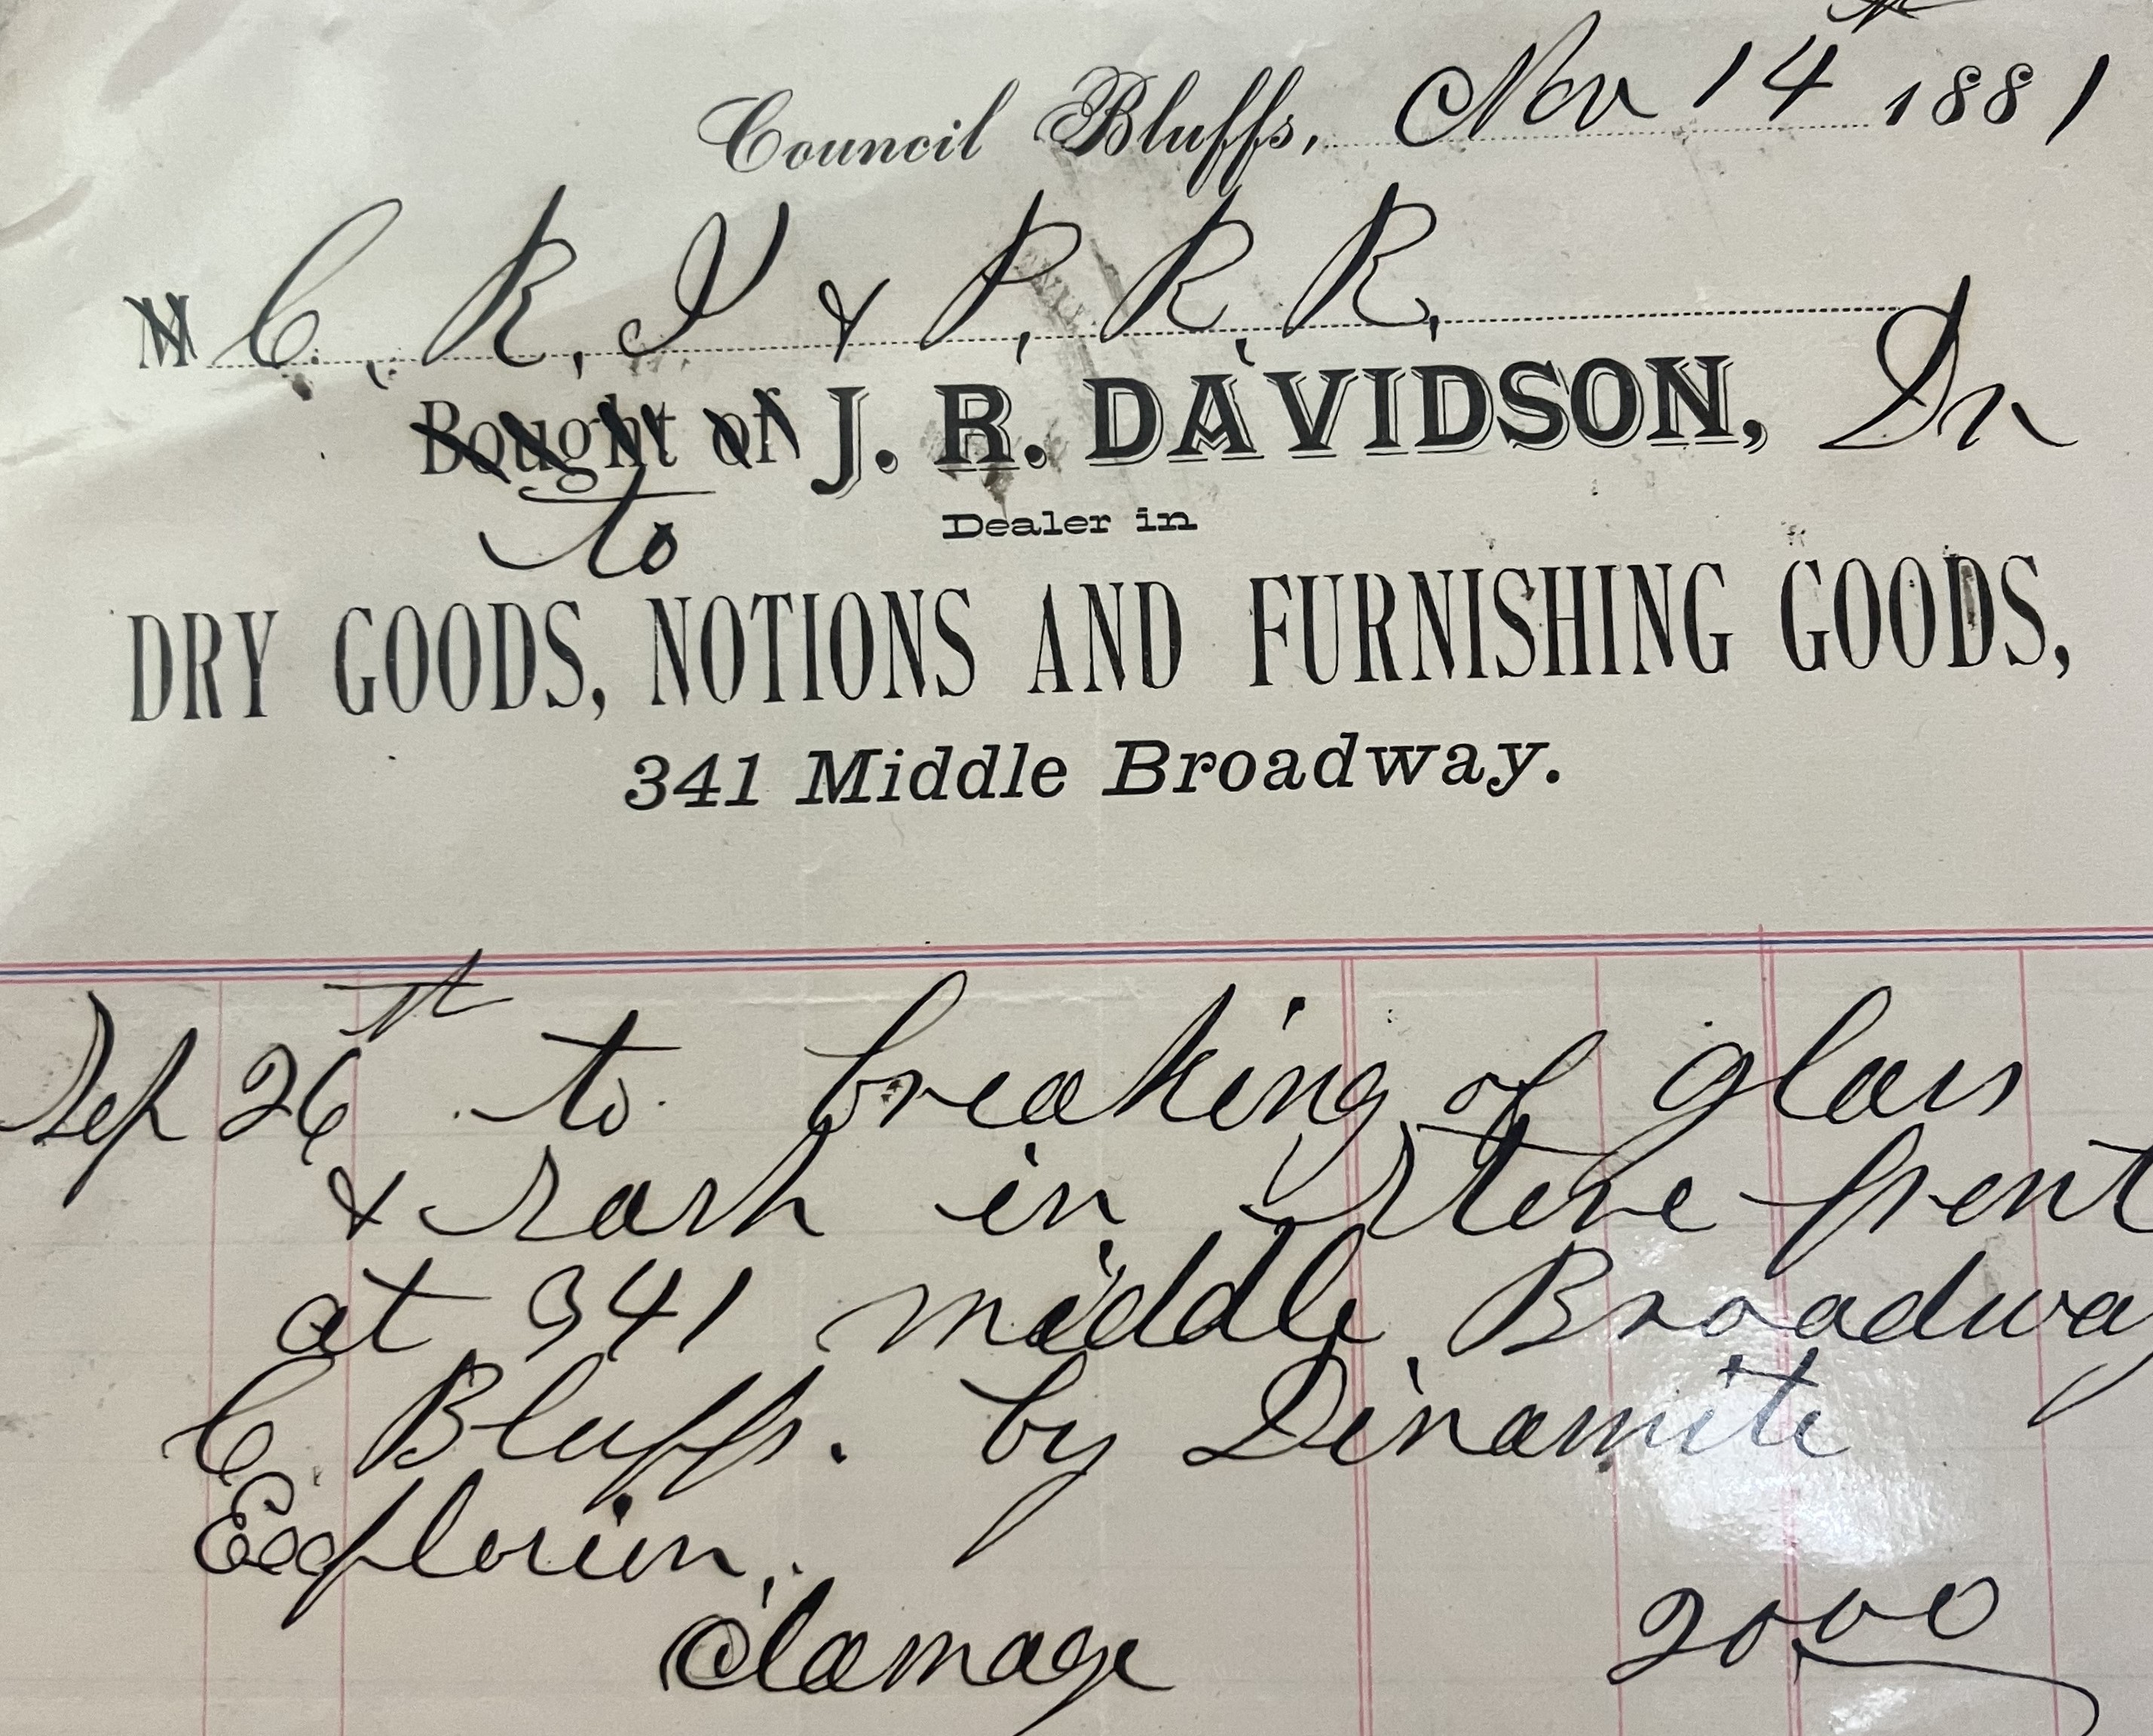 Council Bluffs, Nov 14th 1881
M C. R. I & P. R. R.
Bought of J. R. DAVIDSON, Dr
to
Dealer in
DRY GOODS, NOTIONS AND FURNISHING GOODS,
341 Middle Broadway.
Sep 26th to breaking of glass
& sash in Store front
at 341 middle Broadway
C Bluffs. by Dinamite
Explosion.
damage 20.00